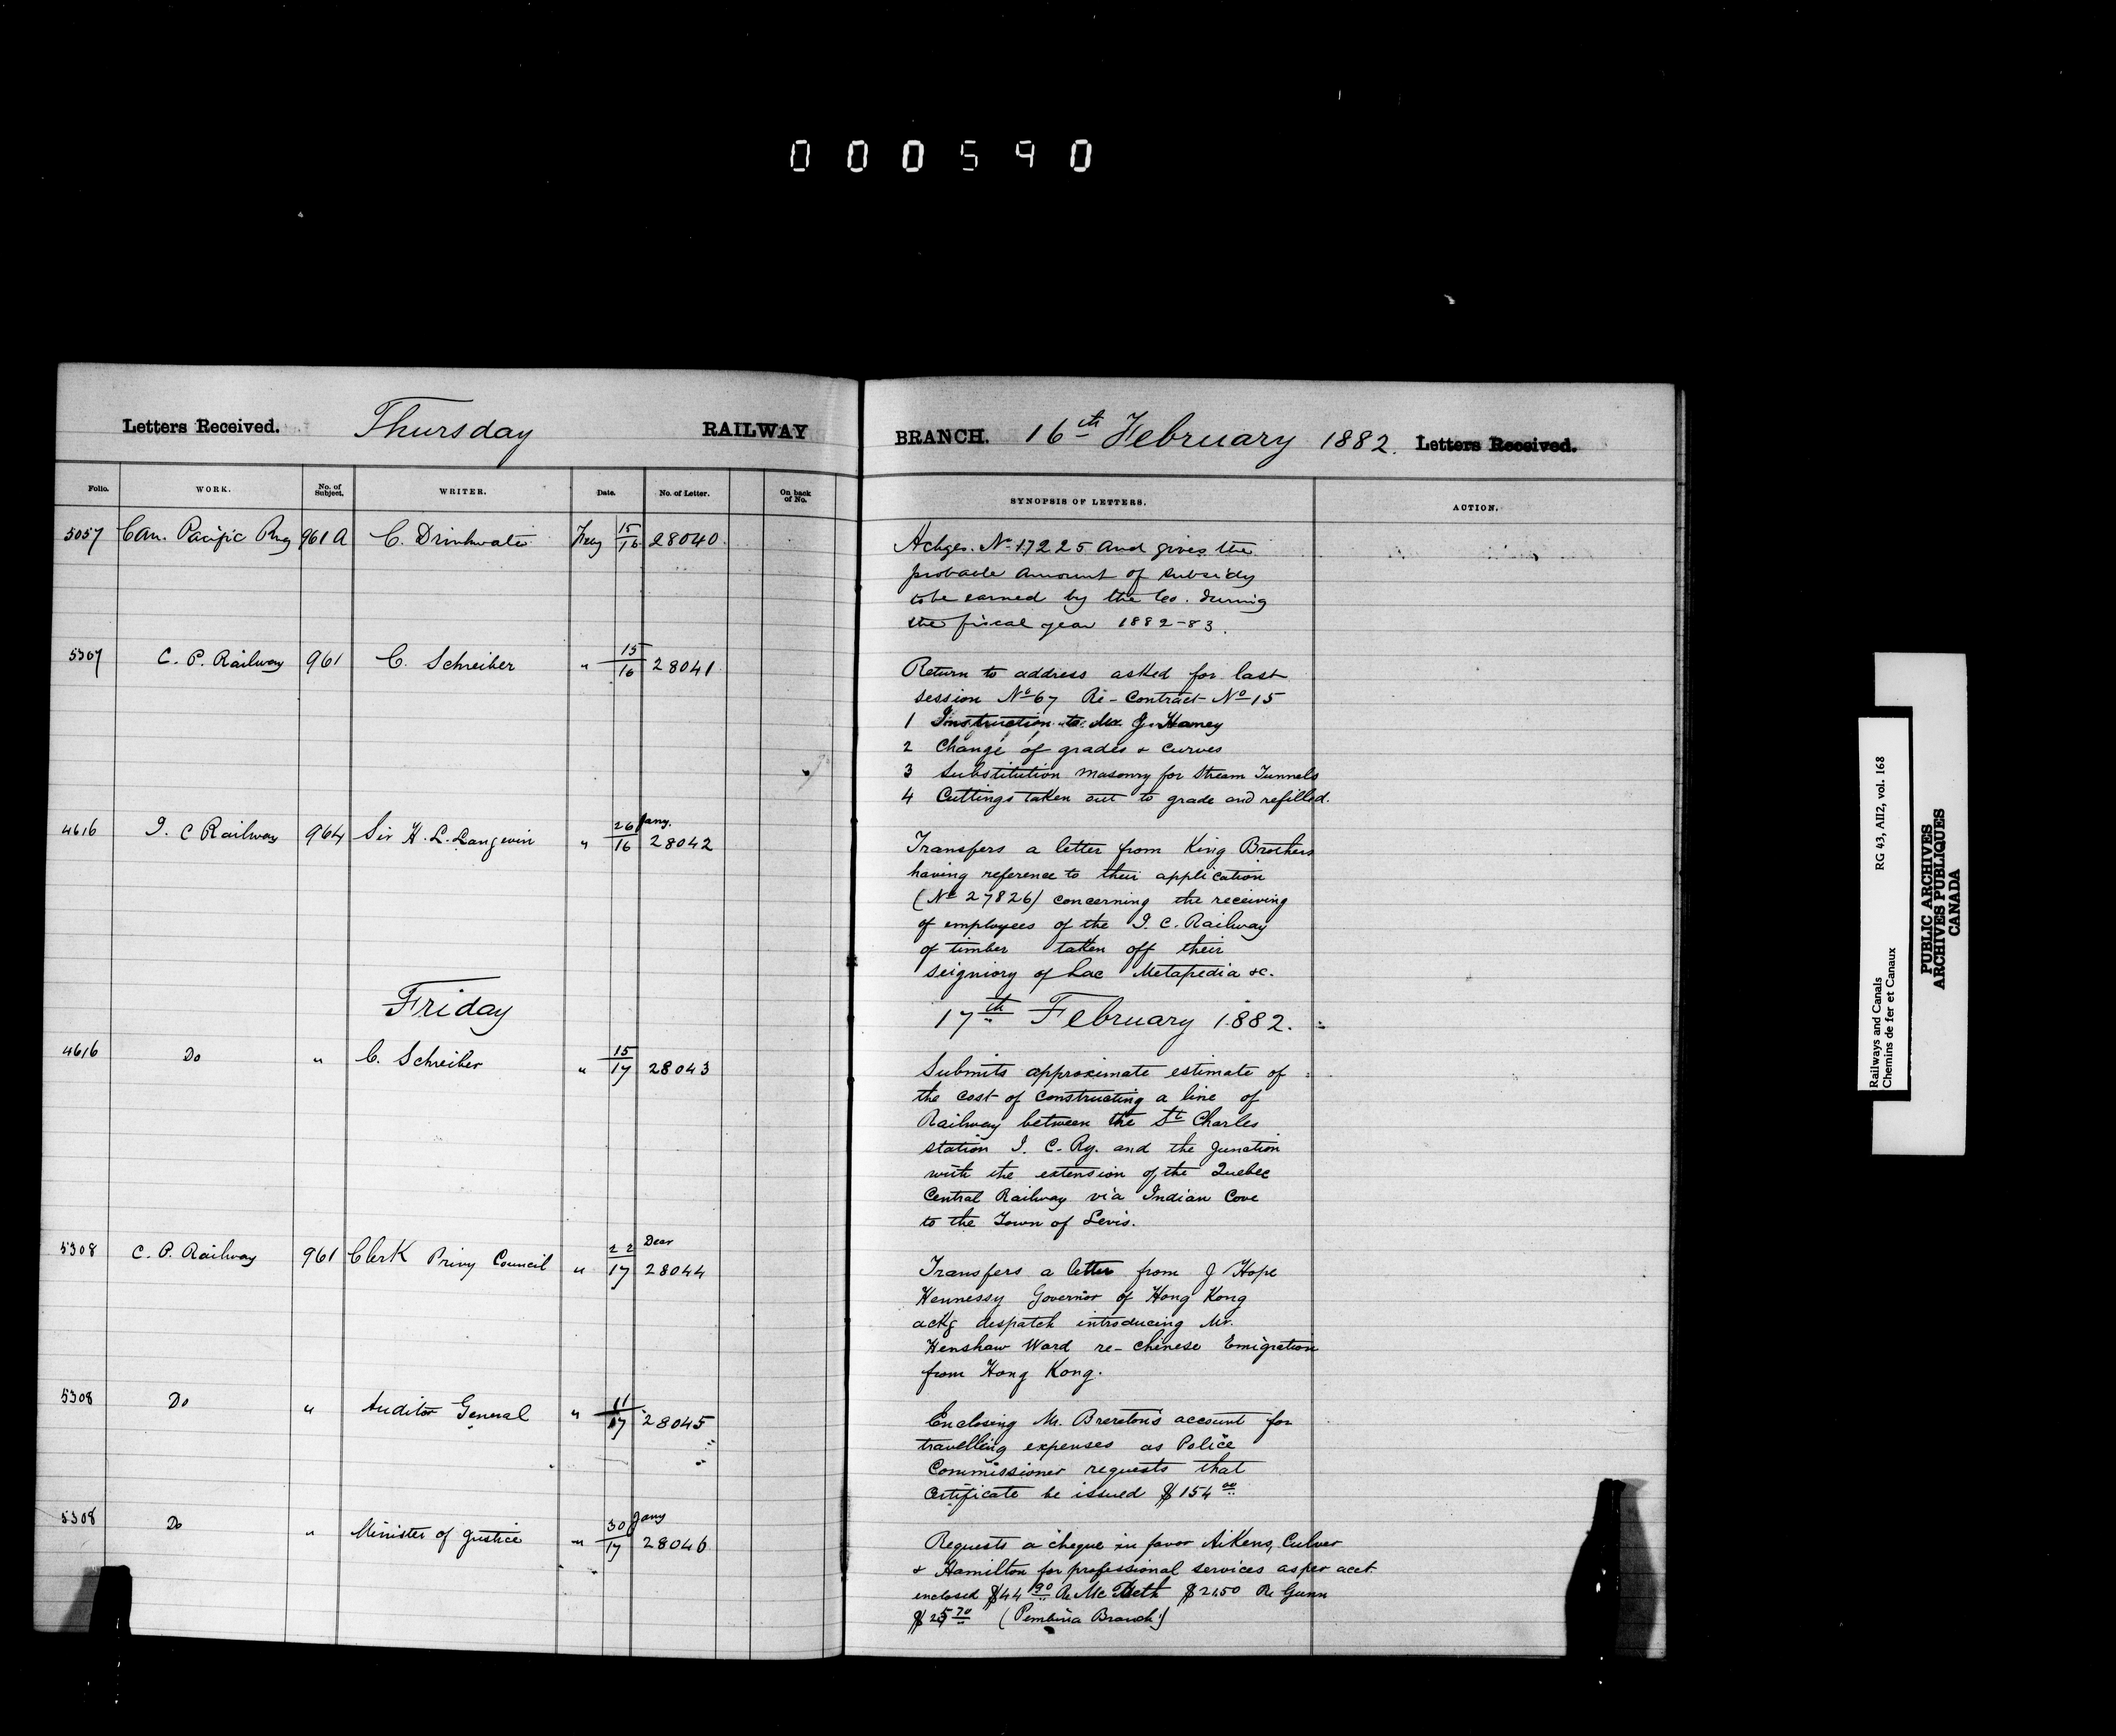 000590
Letters Received. Thursday RAILWAY BRANCH. 16th February 1882. Letters Received.
Folio. WORK. No. of Subject. WRITER. Date. No. of Letter. On back of No. SYNOPSIS OF LETTERS. ACTION.
5057 Can. Pacific Rwy 961 A C. Drinkwater Feby 15/16 28040
Ackges. No 17225 and gives the
probable amount of subsidy
to be earned by the Co. during
the fiscal year 1882-83.
5307 C. P. Railway 961 C. Schreiber " 15/16 28041
Return to address asked for last
session No 67 Re- Contract No 15
1 Instruction to Mr. J. Haney
2 Change of grades & curves
3 Substitution masonry for Stream Tunnels
4 Cuttings taken out to grade and refilled.
4616 I. C Railway 964 Sir H. L. Langevin " 26 Jany./16 28042
Transfers a letter from King Brothers
having reference to their application
(No 27826) concerning the receiving
of employees of the I. C. Railway
of timber taken off their
seigniory of Lac Metapedia &c.
Friday 17th February 1882.
4616 Do " C. Schreiber " 15/17 28043
Submits approximate estimate of
the cost of constructing a line of
Railway between the St Charles
station I. C. Ry. and the Junction
with the extension of the Quebec
Central Railway via Indian Cove
to the Town of Levis.
5308 C. P. Railway 961 Clerk Privy Council " 22 Decr/17 28044
Transfers a letter from J Hope
Hennessy Governor of Hong Kong
ackg despatch introducing Mr.
Henshaw Ward re- Chinese Emigration
from Hong Kong.
5308 Do " Auditor General " 11/17 28045
Enclosing Mr. Brereton's account for
travelling expenses as Police
Commissioner requests that
Certificate be issued $154 00
5308 Do " Minister of Justice " 30 Jany/17 28046
Requests a cheque in favor Aikens, Culver
& Hamilton for professional services as per acct
enclosed $44 90 Re Mc Beth $21.50 Re Gunn
(Pembina Branch)
Railways and Canals RG 43, AII2, vol. 168
Chemins de fer et Canaux
PUBLIC ARCHIVES
ARCHIVES PUBLIQUES
CANADA